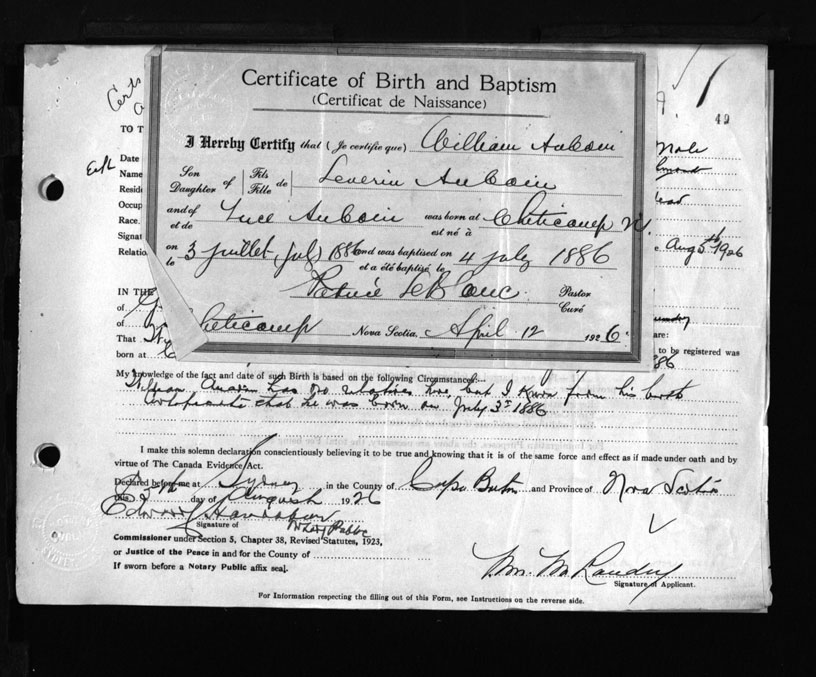 Certs
49
Certificate of Birth and Baptism
(Certificat de Naissance)
I Hereby Certify that (Je certifie que) William AuCoin
Son Daughter of Fils Fille de Severin AuCoin
and of et de Luce AuCoin was born at est né à Cheticamp N.
on le 3 juillet, july 1886 and was baptised on et a été baptisé le 4 july 1886
Patrice LeBlanc Pastor Curé
Cheticamp Nova Scotia, April 12 1926.
TO T
Date
Male
Name
Resid
Occup
Race.
Signat
Aug 5th 1926
Relatio
IN THE
of
of
are:
That
to be registered was
born at
86
My knowledge of the fact and date of such Birth is based on the following Circumstances:—
William has no relatives here but I know from his birth
that he was born on July 3rd 1886
I make this solemn declaration conscientiously believing it to be true and knowing that it is of the same force and effect as if made under oath and by
virtue of The Canada Evidence Act.
Declared before me at Sydney in the County of Cape Breton and Province of Nova Scotia
this day of August 1926
Edward
Signature of Notary Public
Commissioner under Section 5, Chapter 38, Revised Statutes, 1923,
or Justice of the Peace in and for the County of
If sworn before a Notary Public affix seal.
Wm. M.
Signature of Applicant.
For Information respecting the filling out of this Form, see Instructions on the reverse side.